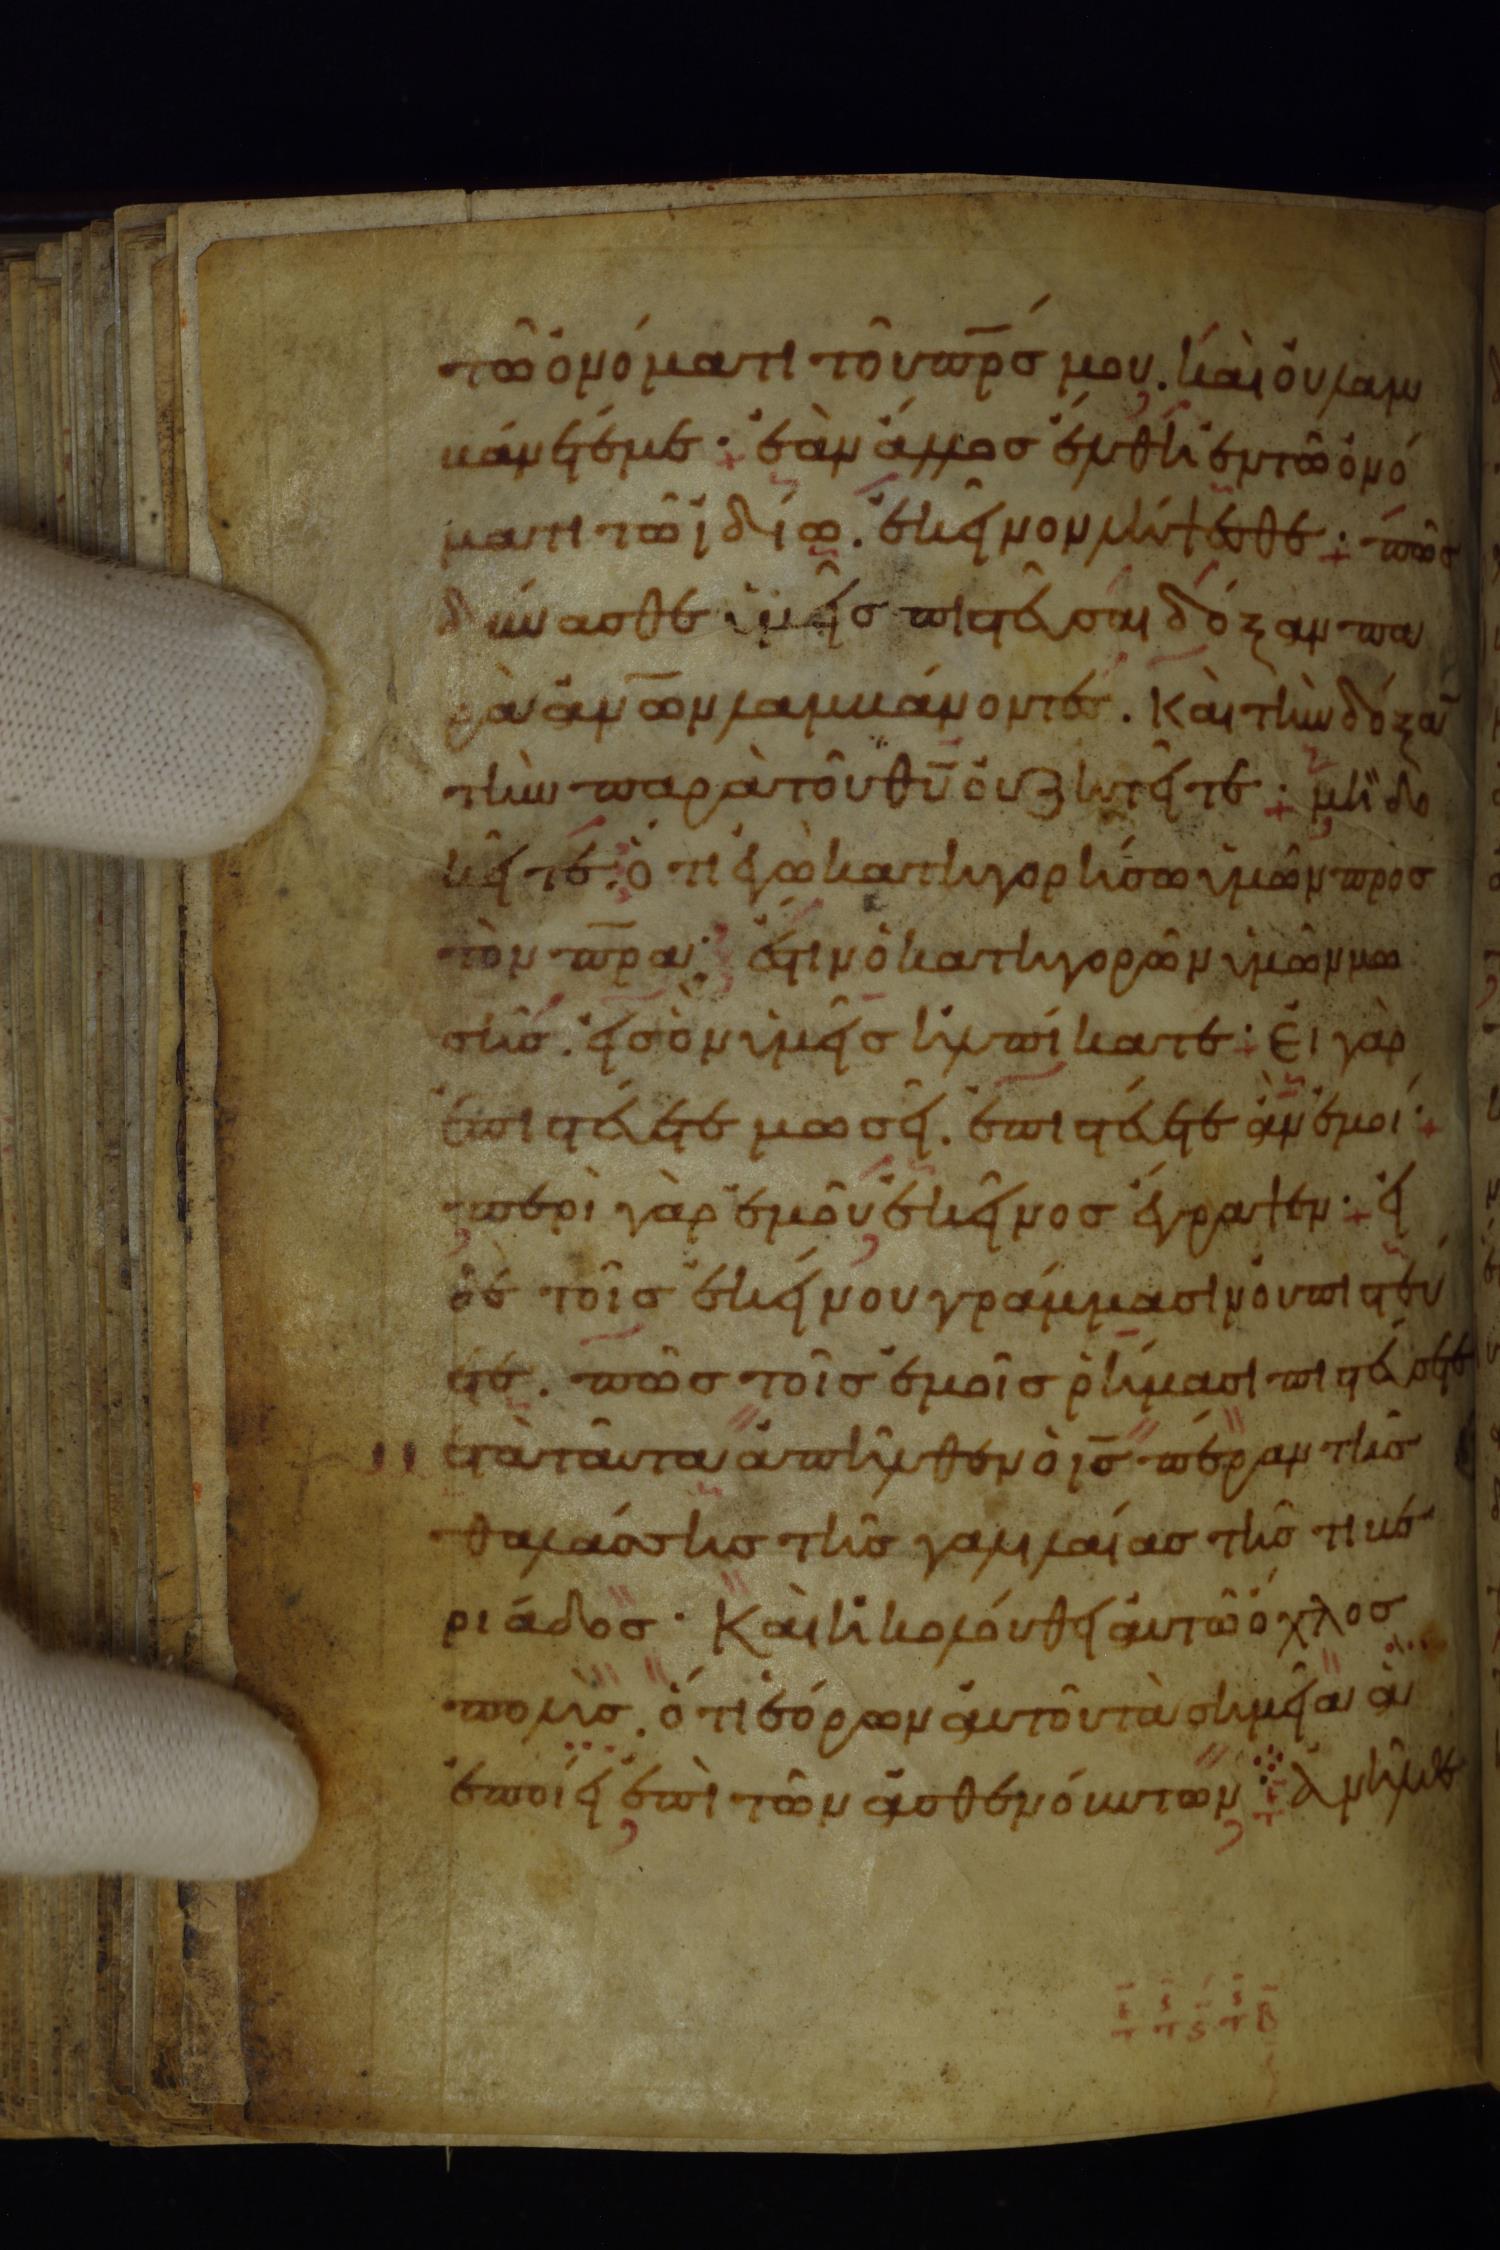 τῶ ὀνόματι τοῦ πρ̅ς μου. καὶ οὐ λαμ
βάνετέ με· ἐὰν ἄλλος ἔλθη ἐν τῶ ὀνό
ματι τῶ ἰδίω. ἐκεῖνον λήψεσθε· πῶς
δύνασθε ὑμεῖς πιστεύσαι δόξαν πα
ρὰ ἀν̅ων λαμβάνοντες. καὶ τὴν δόξαν
τὴν παρὰ τοῦ θυ̅ οὐ ζητεῖτε· μὴ δο
κεῖτε· ὅτι ἐγὼ κατηγορήσω ὑμῶν πρὸς
τὸν πρ̅α· ἔστιν ὁ κατηγορῶν ὑμῶν μω
σῆς. εἰς ὃν ὑμεῖς ἠλπίκατε· εἰ γὰρ
ἐπιστεύετε μωσεῖ. ἐπιστεύετε ἂν ἐμοί·
περὶ γὰρ ἐμοῦ ἐκεῖνος ἔγραψεν· εἰ
δὲ τοῖς ἐκείνου γράμμασιν οὐ πιστεύ
ετε. πῶς τοῖς ἐμοῖς ῥήμασι πιστεύσετε
μετὰ ταῦτα ἀπῆλθεν ὁ ις̅ πέραν τῆς
θαλάσσης τῆς γαλιλαίας τῆς τιβε
ριάδος· Καὶ ἠκολούθει αὐτῶ ὄχλος
πολὺς. ὅτι ἑόρων αὐτοῦ τὰ σημεῖα ἃ
ἐποίει ἐπὶ τῶν ἀσθενούντων· ἀνῆλθε